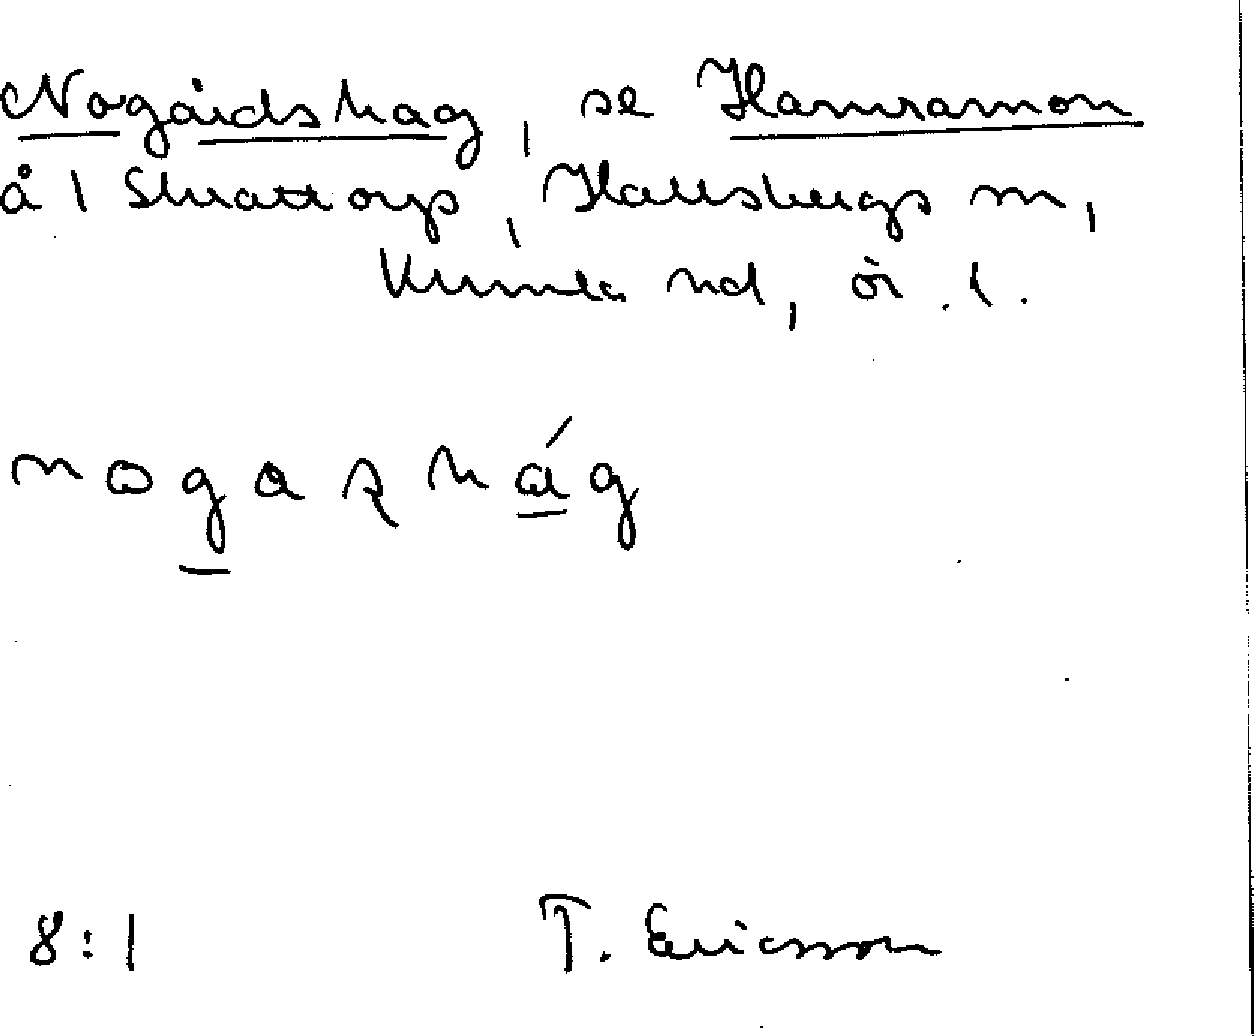 Nogårdshag, se Hamramon
å 1 Skrattorp, Hallsbergs sn,
Kumla hd, Ör. l.
nogaʂhág
8:1 T. Ericsson